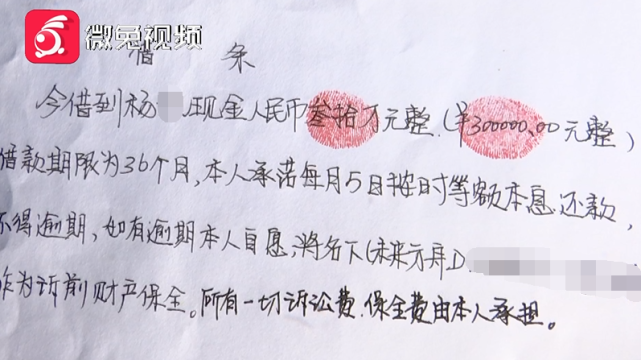 微兔视频
借 条
今借到杨 现金人民币叁拾万元整.(¥300000.00元整)
借款期限为36个月,本人承诺每月5日按时等额本息还款,
不得逾期,如有逾期本人自愿,将名下(未来方舟D
作为诉前财产保全。所有一切诉讼费.保全费由本人承担。